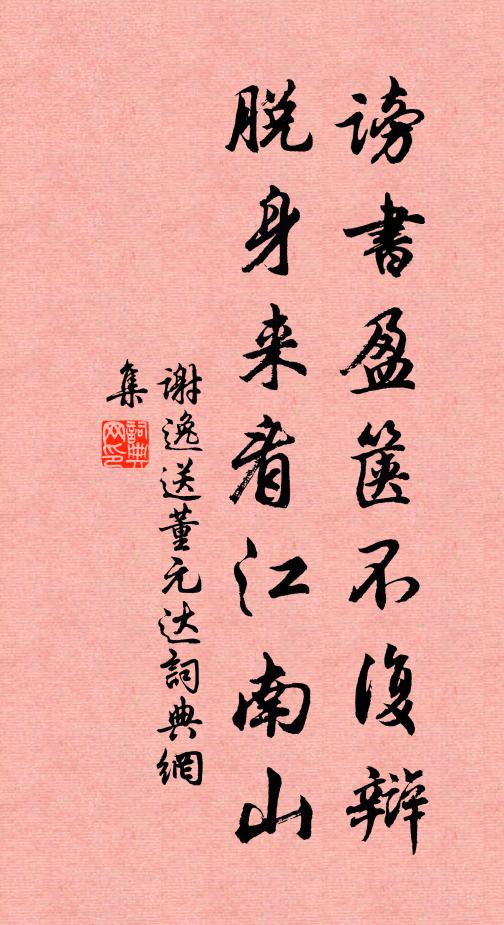 謗書盈篋不復辯
脱身来看江南山
謝逸送董元达詞典網
集
詞典
网印